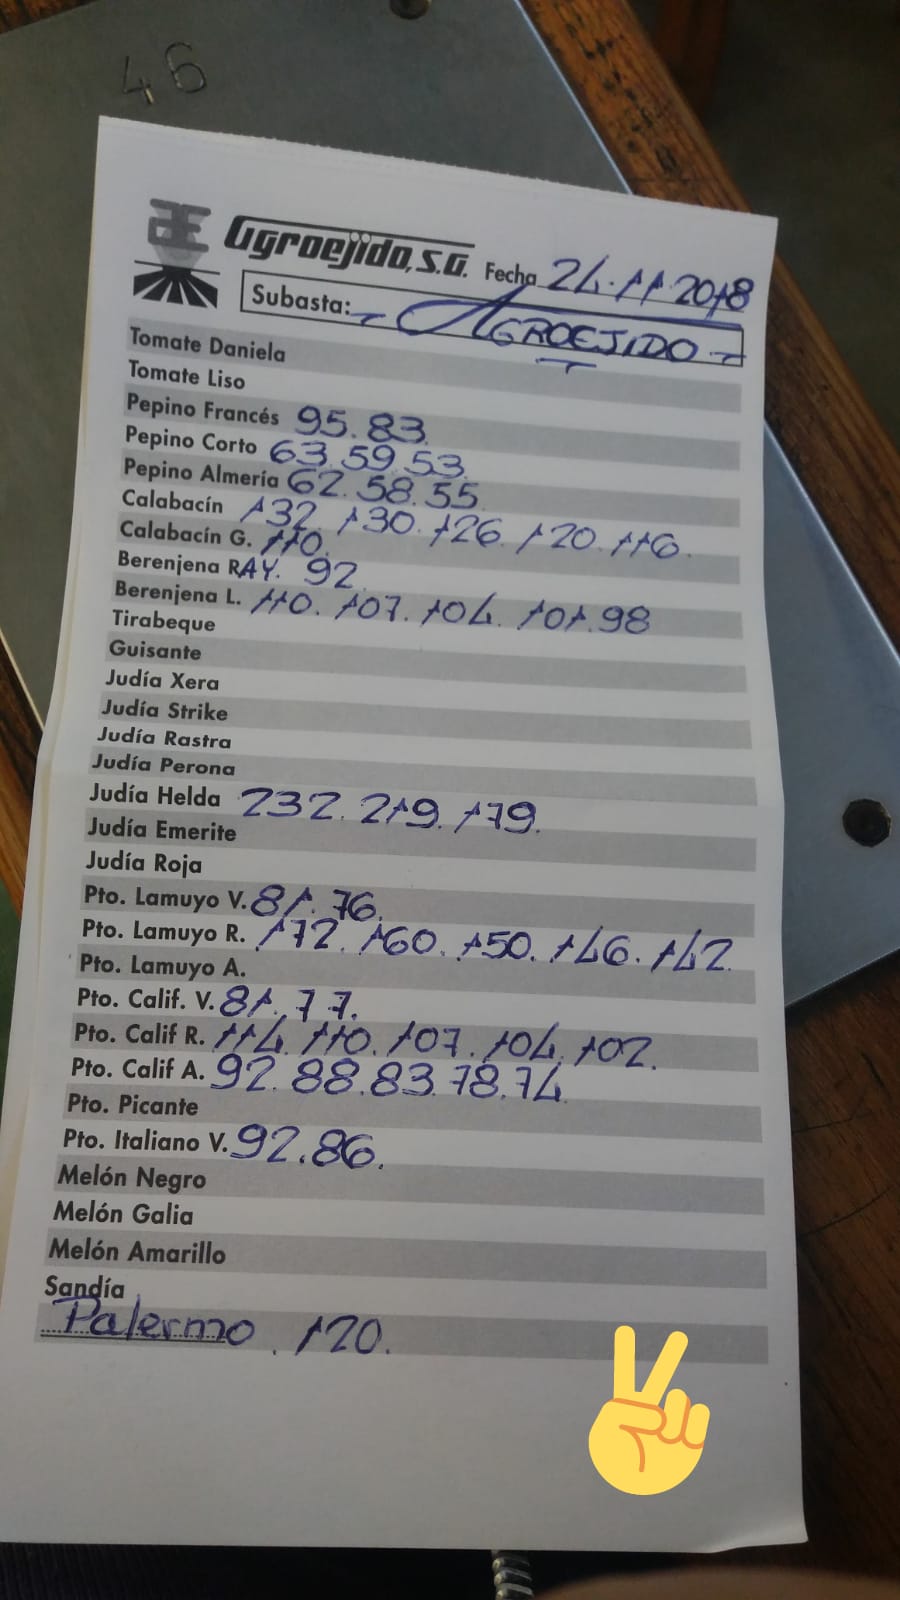 46
Agroejido, S.A. Fecha 24.11.2018
Subasta: - AGROEJIDO -
Tomate Daniela
Tomate Liso
Pepino Francés 95.83.
Pepino Corto 63.59.53.
Pepino Almería 62.58.55
Calabacín 132.130.126.120.116.
Calabacín G. 110.
Berenjena RAY. 92.
Berenjena L. 110.107.104.101.98
Tirabeque
Guisante
Judía Xera
Judía Strike
Judía Rastra
Judía Perona
Judía Helda 232.219.179.
Judía Emerite
Judía Roja
Pto. Lamuyo V. 81.76.
Pto. Lamuyo R. 172.160.150.146.142.
Pto. Lamuyo A.
Pto. Calif. V. 81.77.
Pto. Calif R. 114.110.107.104.102.
Pto. Calif A. 92.88.83.78.74
Pto. Picante
Pto. Italiano V. 92.86.
Melón Negro
Melón Galia
Melón Amarillo
Sandía
Palermo . 120.